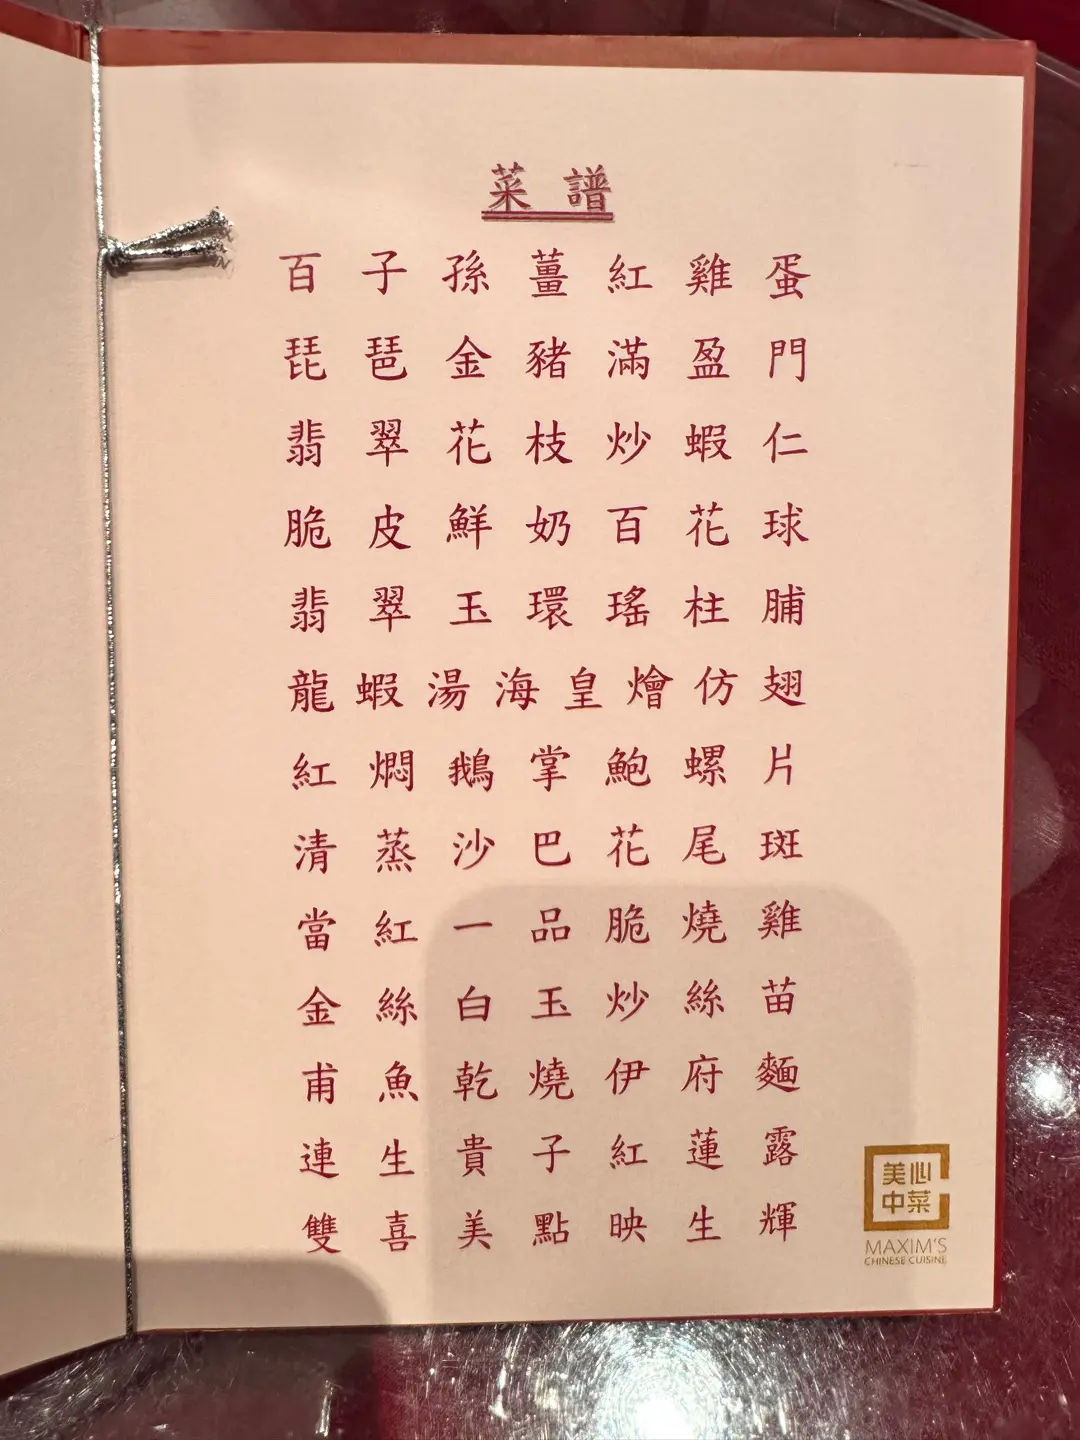 菜譜
百子孫薑紅雞蛋
琵琶金豬滿盈門
翡翠花枝炒蝦仁
脆皮鮮奶百花球
翡翠玉環瑤柱脯
龍蝦湯海皇燴仿翅
紅燜鵝掌鮑螺片
清蒸沙巴花尾斑
當紅一品脆燒雞
金絲白玉炒絲苗
甫魚乾燒伊府麵
連生貴子紅蓮露
雙喜美點映生輝
美心
中菜
MAXIM'S
CHINESE CUISINE